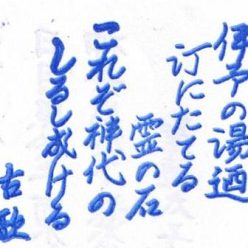 伊予の湯迺
汀にたてる
霊の石
これぞ神代の
しるし成ける
古歌